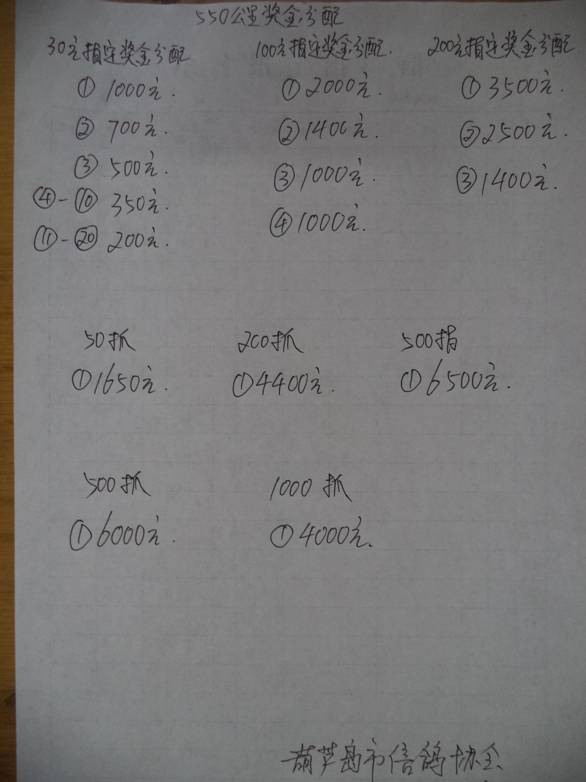 550公里奖金分配
30元指定奖金分配 100元指定奖金分配. 200元指定奖金分配
① 1000元. ① 2000元. ① 3500元.
② 700元. ② 1400元. ② 2500元.
③ 500元. ③ 1000元. ③ 1400元.
④-⑩ 350元. ④ 1000元.
⑪-⑳ 200元.
50抓 200抓 500指
① 1650元. ① 4400元. ① 6500元.
500抓 1000抓
① 6000元. ① 4000元.
葫芦岛市信鸽协会